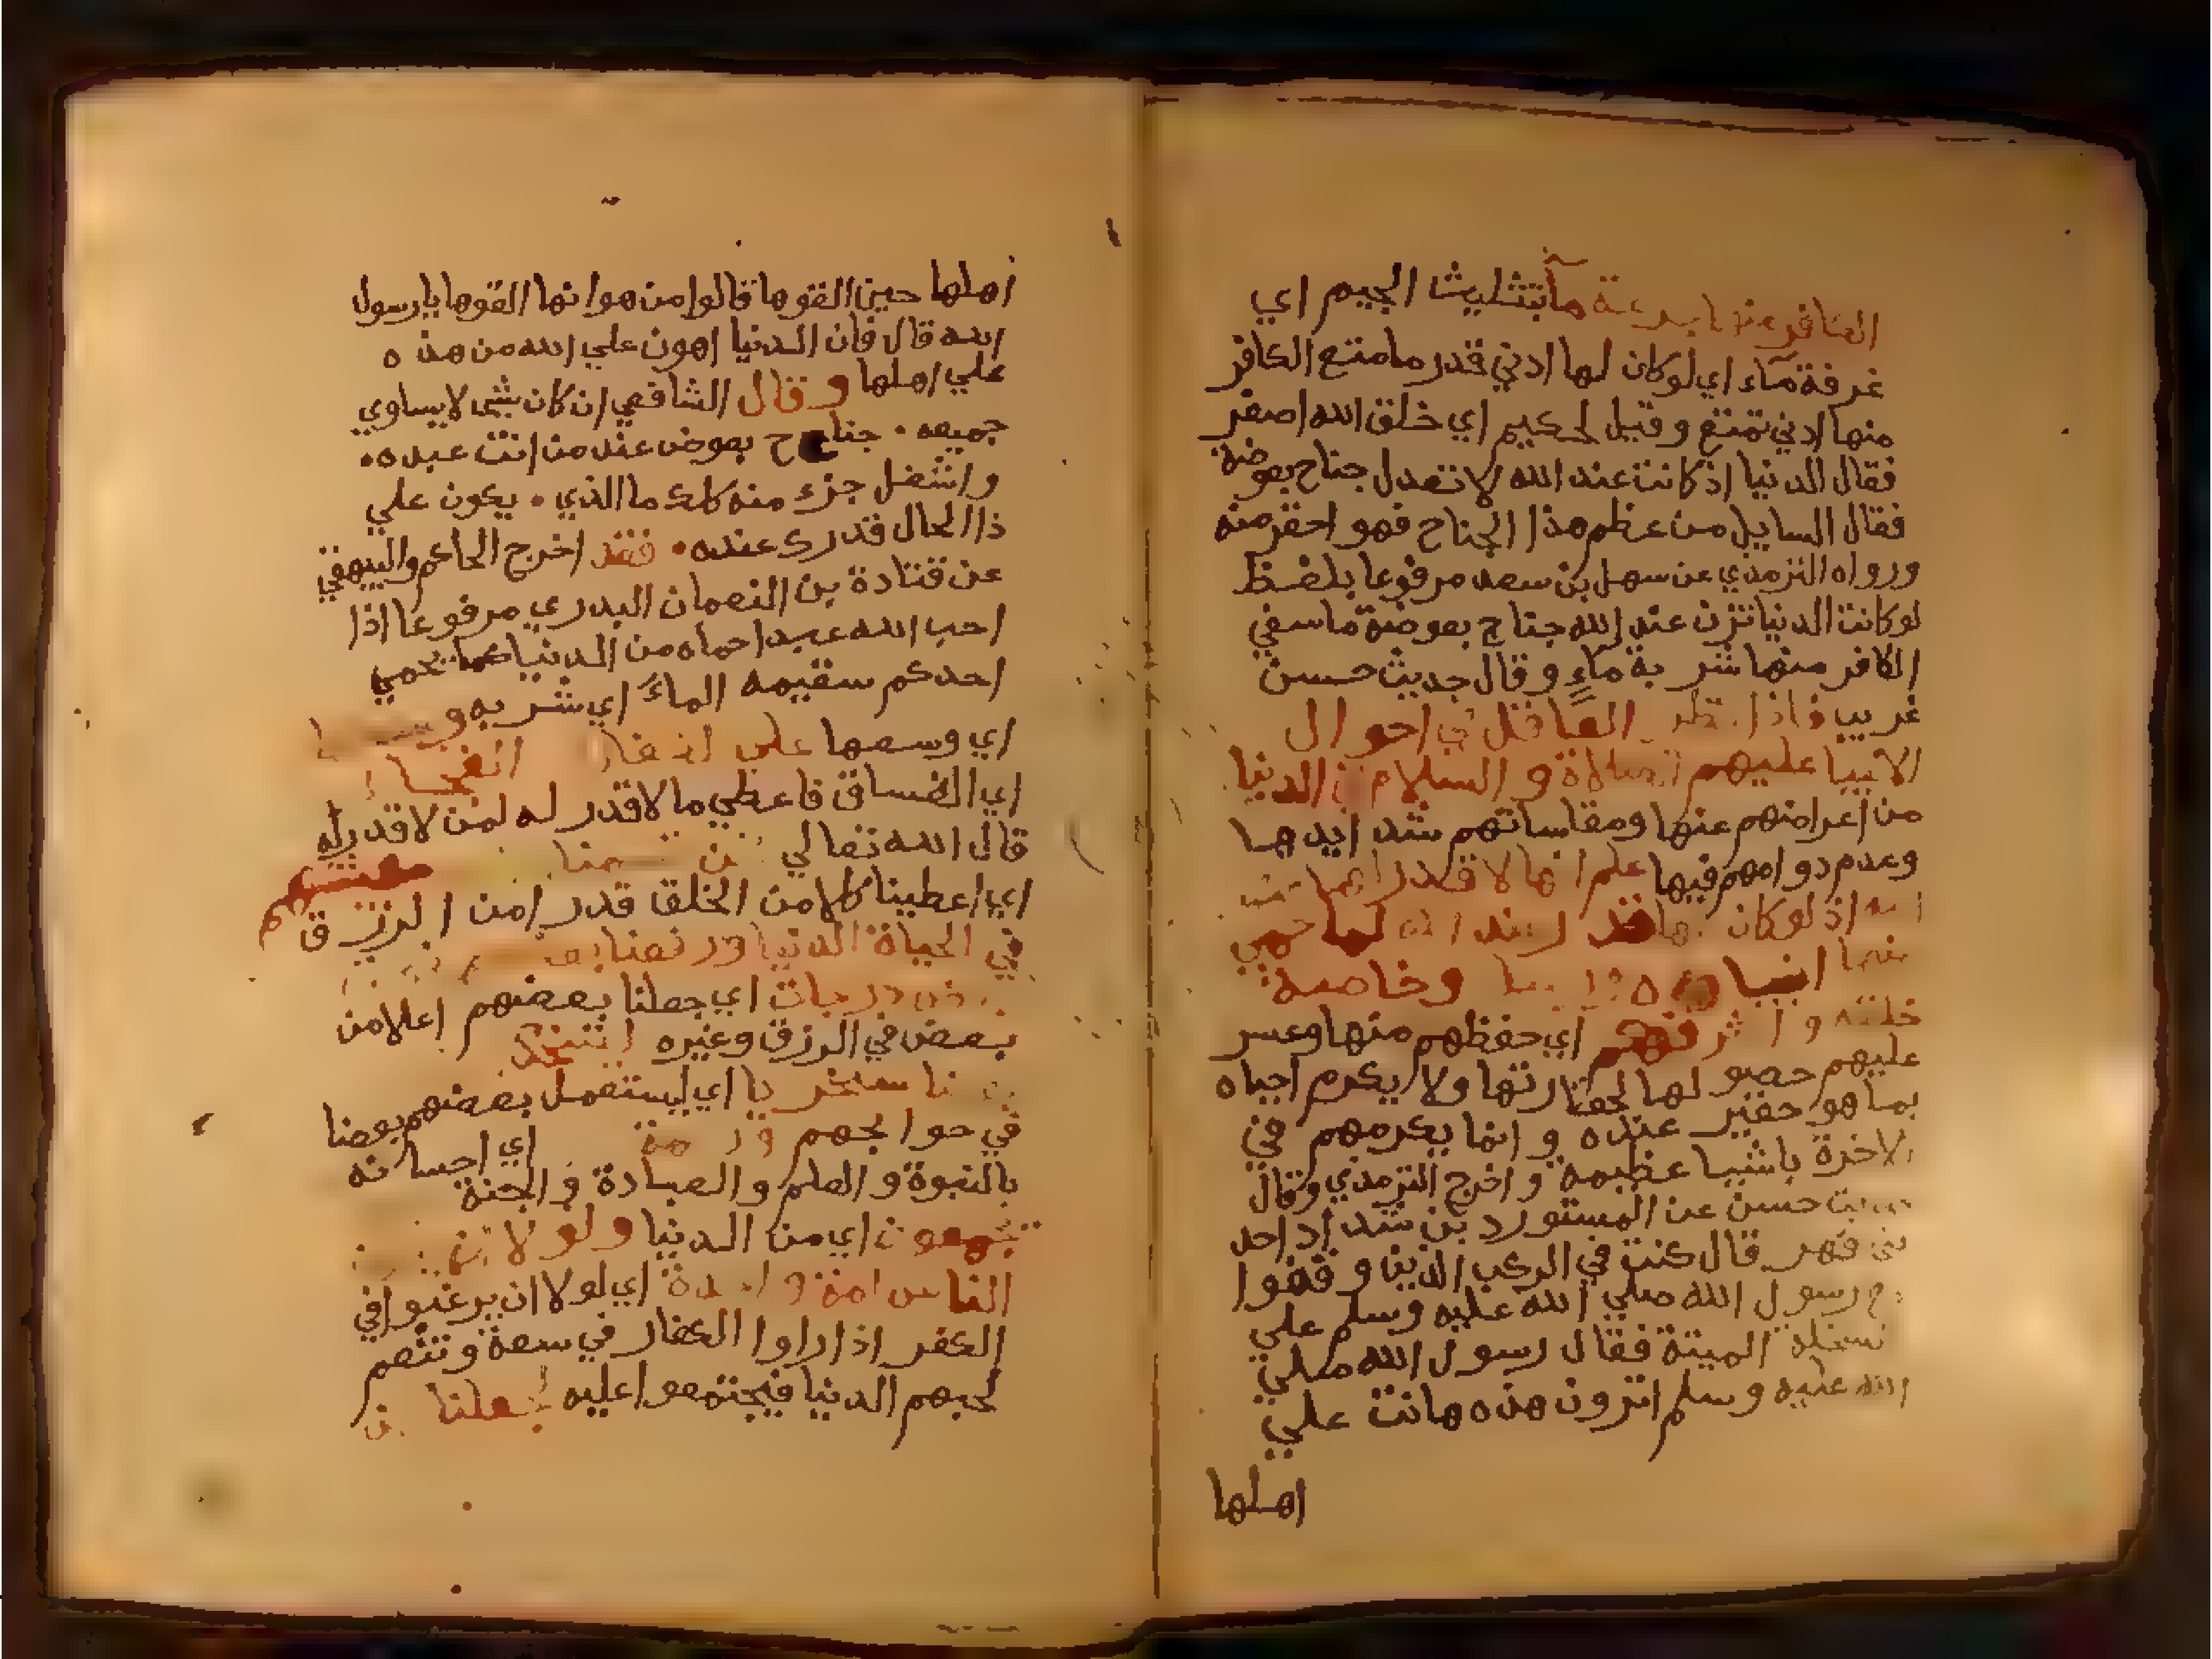 الكافر منها جرعة مآ بتثليث الجيم اي
غرفة مآء اي لو كان لها ادني قدر ما متع الكافر
منها ادني تمتع وقيل لحكيم اي خلق الله اصغر
فقال الدنيا اذ كانت عند الله لا تعدل جناح بعوضة
فقال السايل من عظم هذا الجناح فهو احقر منه
ورواه الترمذي عن سهل بن سعد مرفوعا بلفظ
لو كانت الدنيا تزن عند الله جناح بعوضة ما سقي
الكافر منها شربة ماءٍ وقال حديث حسن
غريب فاذا نظر العاقل في احوال
الانبيا عليهم الصلاة والسلام في الدنيا
من اعراضهم عنها ومقاساتهم شدايدها
وعدم دوامهم فيها علم انها لا قدر لها عند
الله اذ لو كان لها قدر عند الله لما حمي
منها انبياوه وخاصة
خلقه واشرفهم اي حفظهم منها وعسر
عليهم حصولها لحقارتها ولا يكرم احباه
بما هو حقير عنده وانما يكرمهم في
الاخرة باشيا عظيمة واخرج الترمذي وقال
حسن عن المستورد بن شداد احد
بني فهر قال كنت في الركب الذين وقفوا
مع رسول الله صلي الله عليه وسلم علي
السخلة الميتة فقال رسول الله صلي
الله عليه وسلم اترون هذه هانت علي
اهلها
اهلها حين القوها قالوا من هوانها القوها يارسول
الله قال فان الدنيا اهون علي الله من هذه
علي اهلها وقال الشافعي ان كان شي لا يساوي
جميعه جناح بعوض عند من انت عبده
واشغل جزء منه كلك ما الذي يكون علي
ذا الحال قدرك عنده فقد اخرج الحاكم والبيهقي
عن قتادة بن النعمان البدري مرفوعا اذا
احب الله عبدا حماه من الدنيا كما يحمي
احدكم سقيمه الماءَ اي شربه
اي وسعها علي الكفار
اي الفساق فاعطي ما لا قدر له لمن لا قدر له
قال الله تعالي نحن قسمنا معيشتهم
اي اعطينا كلا من الخلق قدرا من الرزق
في الحياة الدنيا ورفعنا بعضهم
درجات اي جعلنا بعضهم اعلا من
بعض في الرزق وغيره ليتخذ
سخريا اي ليستعمل بعضهم بعضا
في حوايجهم ورحمة اي احسانه
بالنبوة والعلم والعبادة والجنة
يجمعون اي من الدنيا ولولا ان يكون
الناس امة واحدة اي لولا ان يرغبوا في
الكفر اذا راوا الكفار في سعة وتنعم
لحبهم الدنيا فيجتمعوا عليه لجعلنا لمن